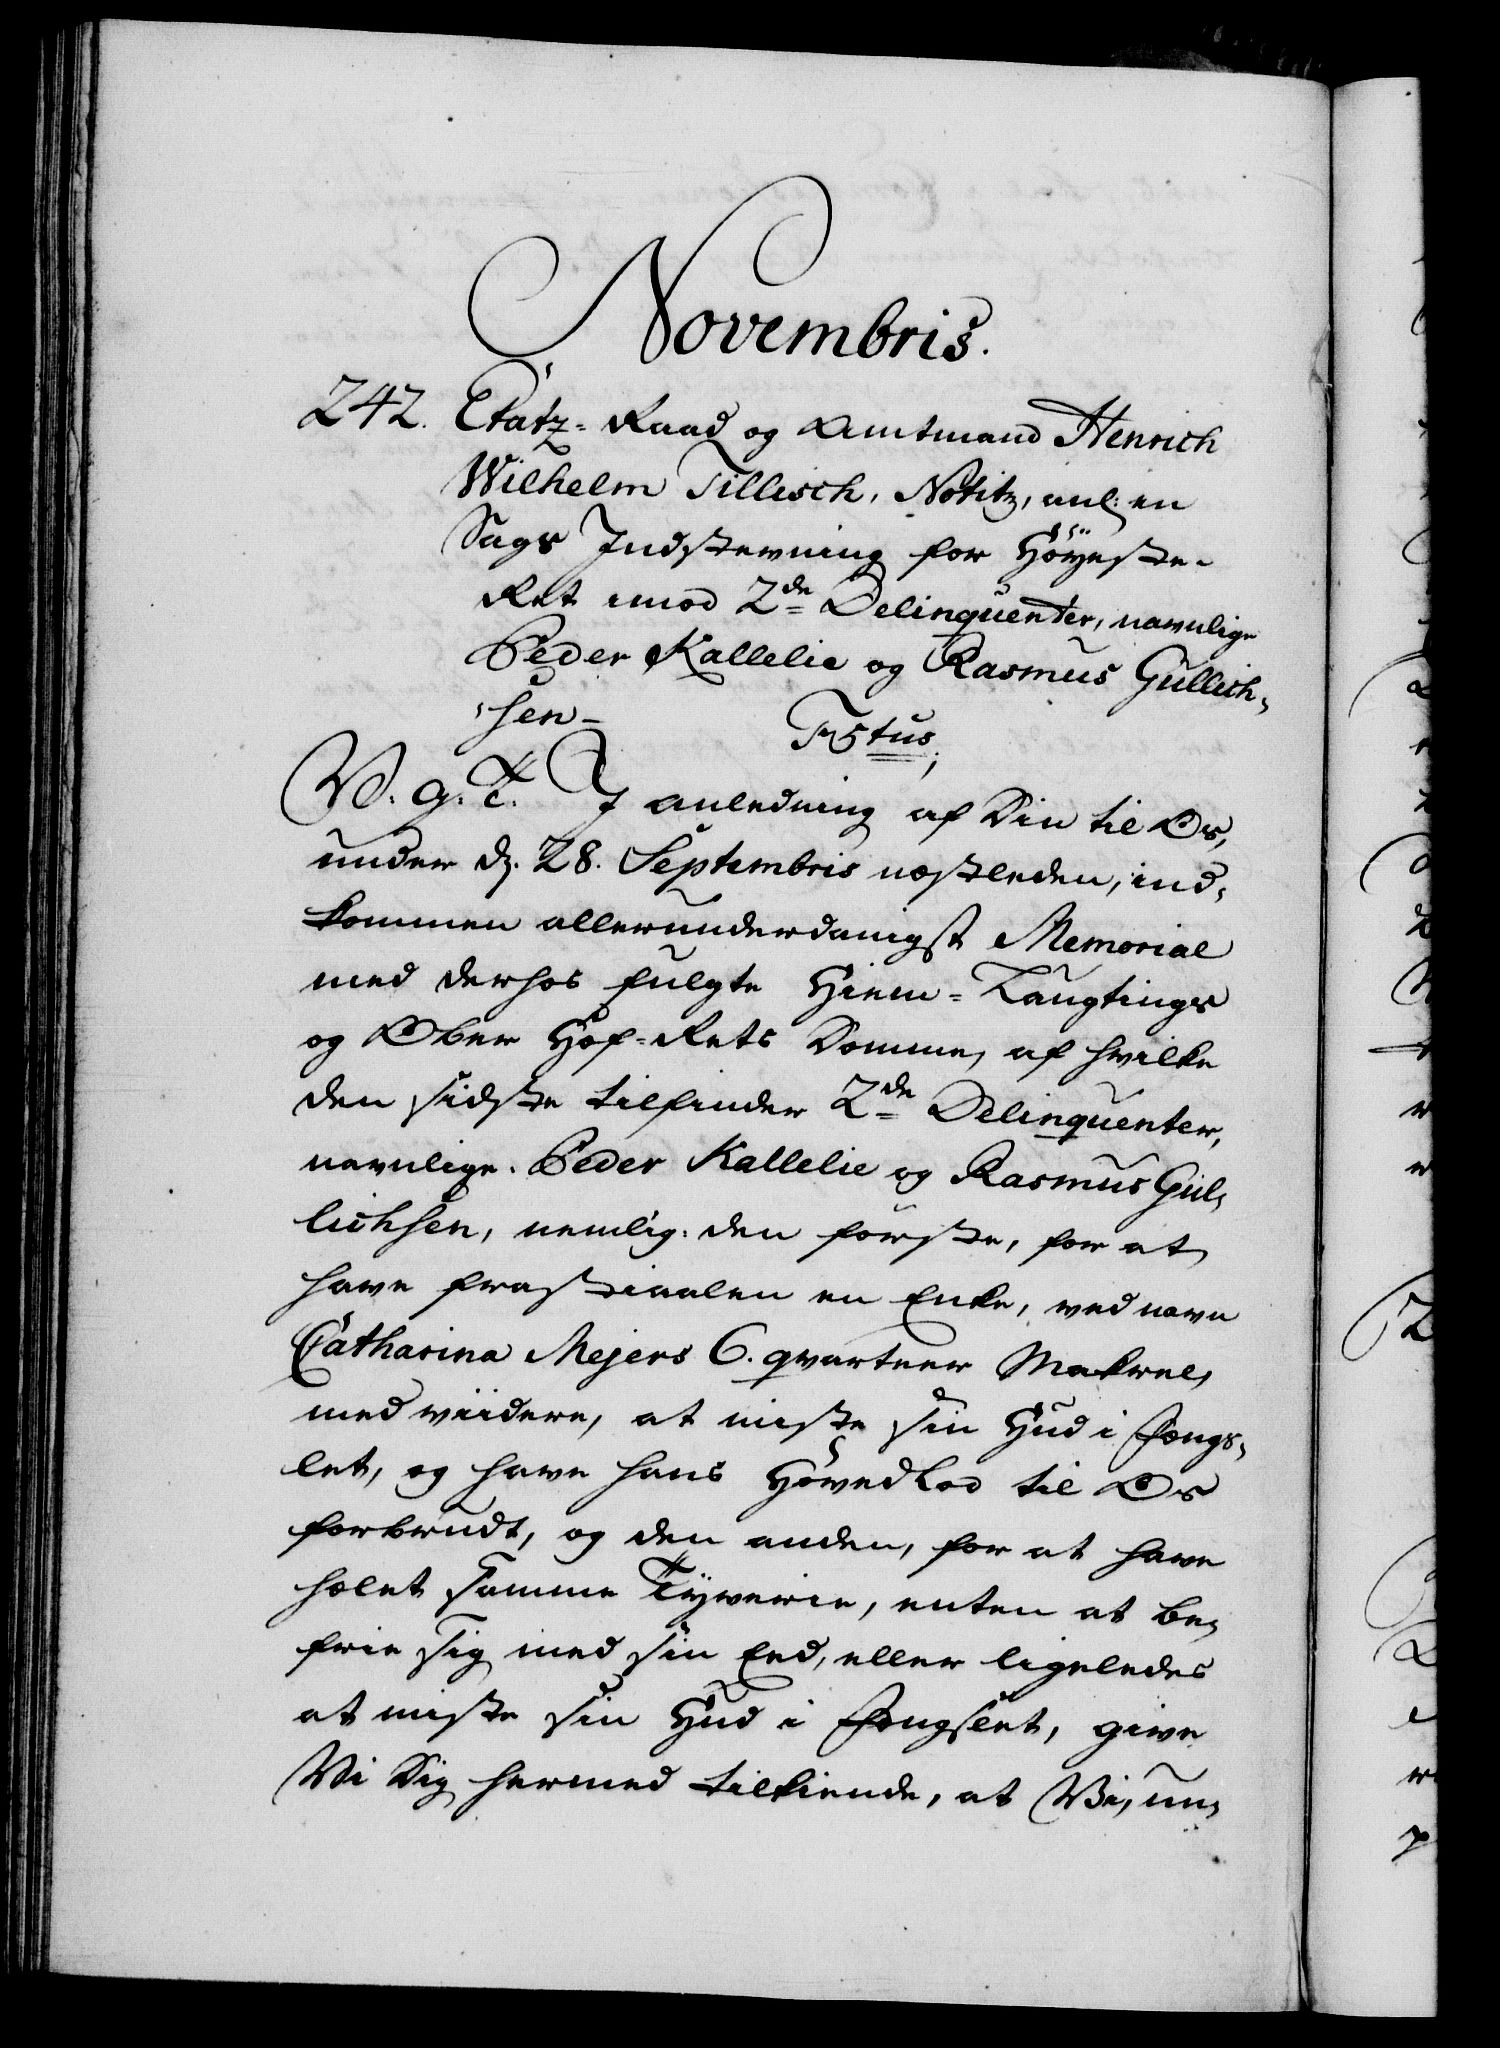 Novembris.
242. Etatz-Raad og Amtmand Henrich
Wilhelm Tillisch, Notitz, anl: en
Sags Indstevning for Höyeste-
Ret imod 2de Delinquenter, navnlige
Peder Kallelie og Rasmus Gullich-
sen-
V. g. T. I anledning af Din til Os,
under d. 28. Septembris næstleden, ind-
kommen allerunderdanigst Memorial
med derhos fulgte Hiem-Laugtings
og Ober Hof-Rets Domme, af hvilke
den sidste tilfinder 2de Delinquenter,
navnlige. Peder Kallelie og Rasmus Gul-
lichsen, nemlig: den förste, for at
have frastiaalen en Enke, ved navn
Catharina Mejers 6. qvarteer Makrel,
med viidere, at miste sin Hud i Fængs-
let, og have hans Hovedlod til Os
forbrudt, og den anden, for at have
hælet samme Tyverie, enten at be-
frie sig med sin Eed, eller ligeledes
at miste sin Hud i Fængslet, give
Vi Dig hermed tilkiende, at Vi, un-